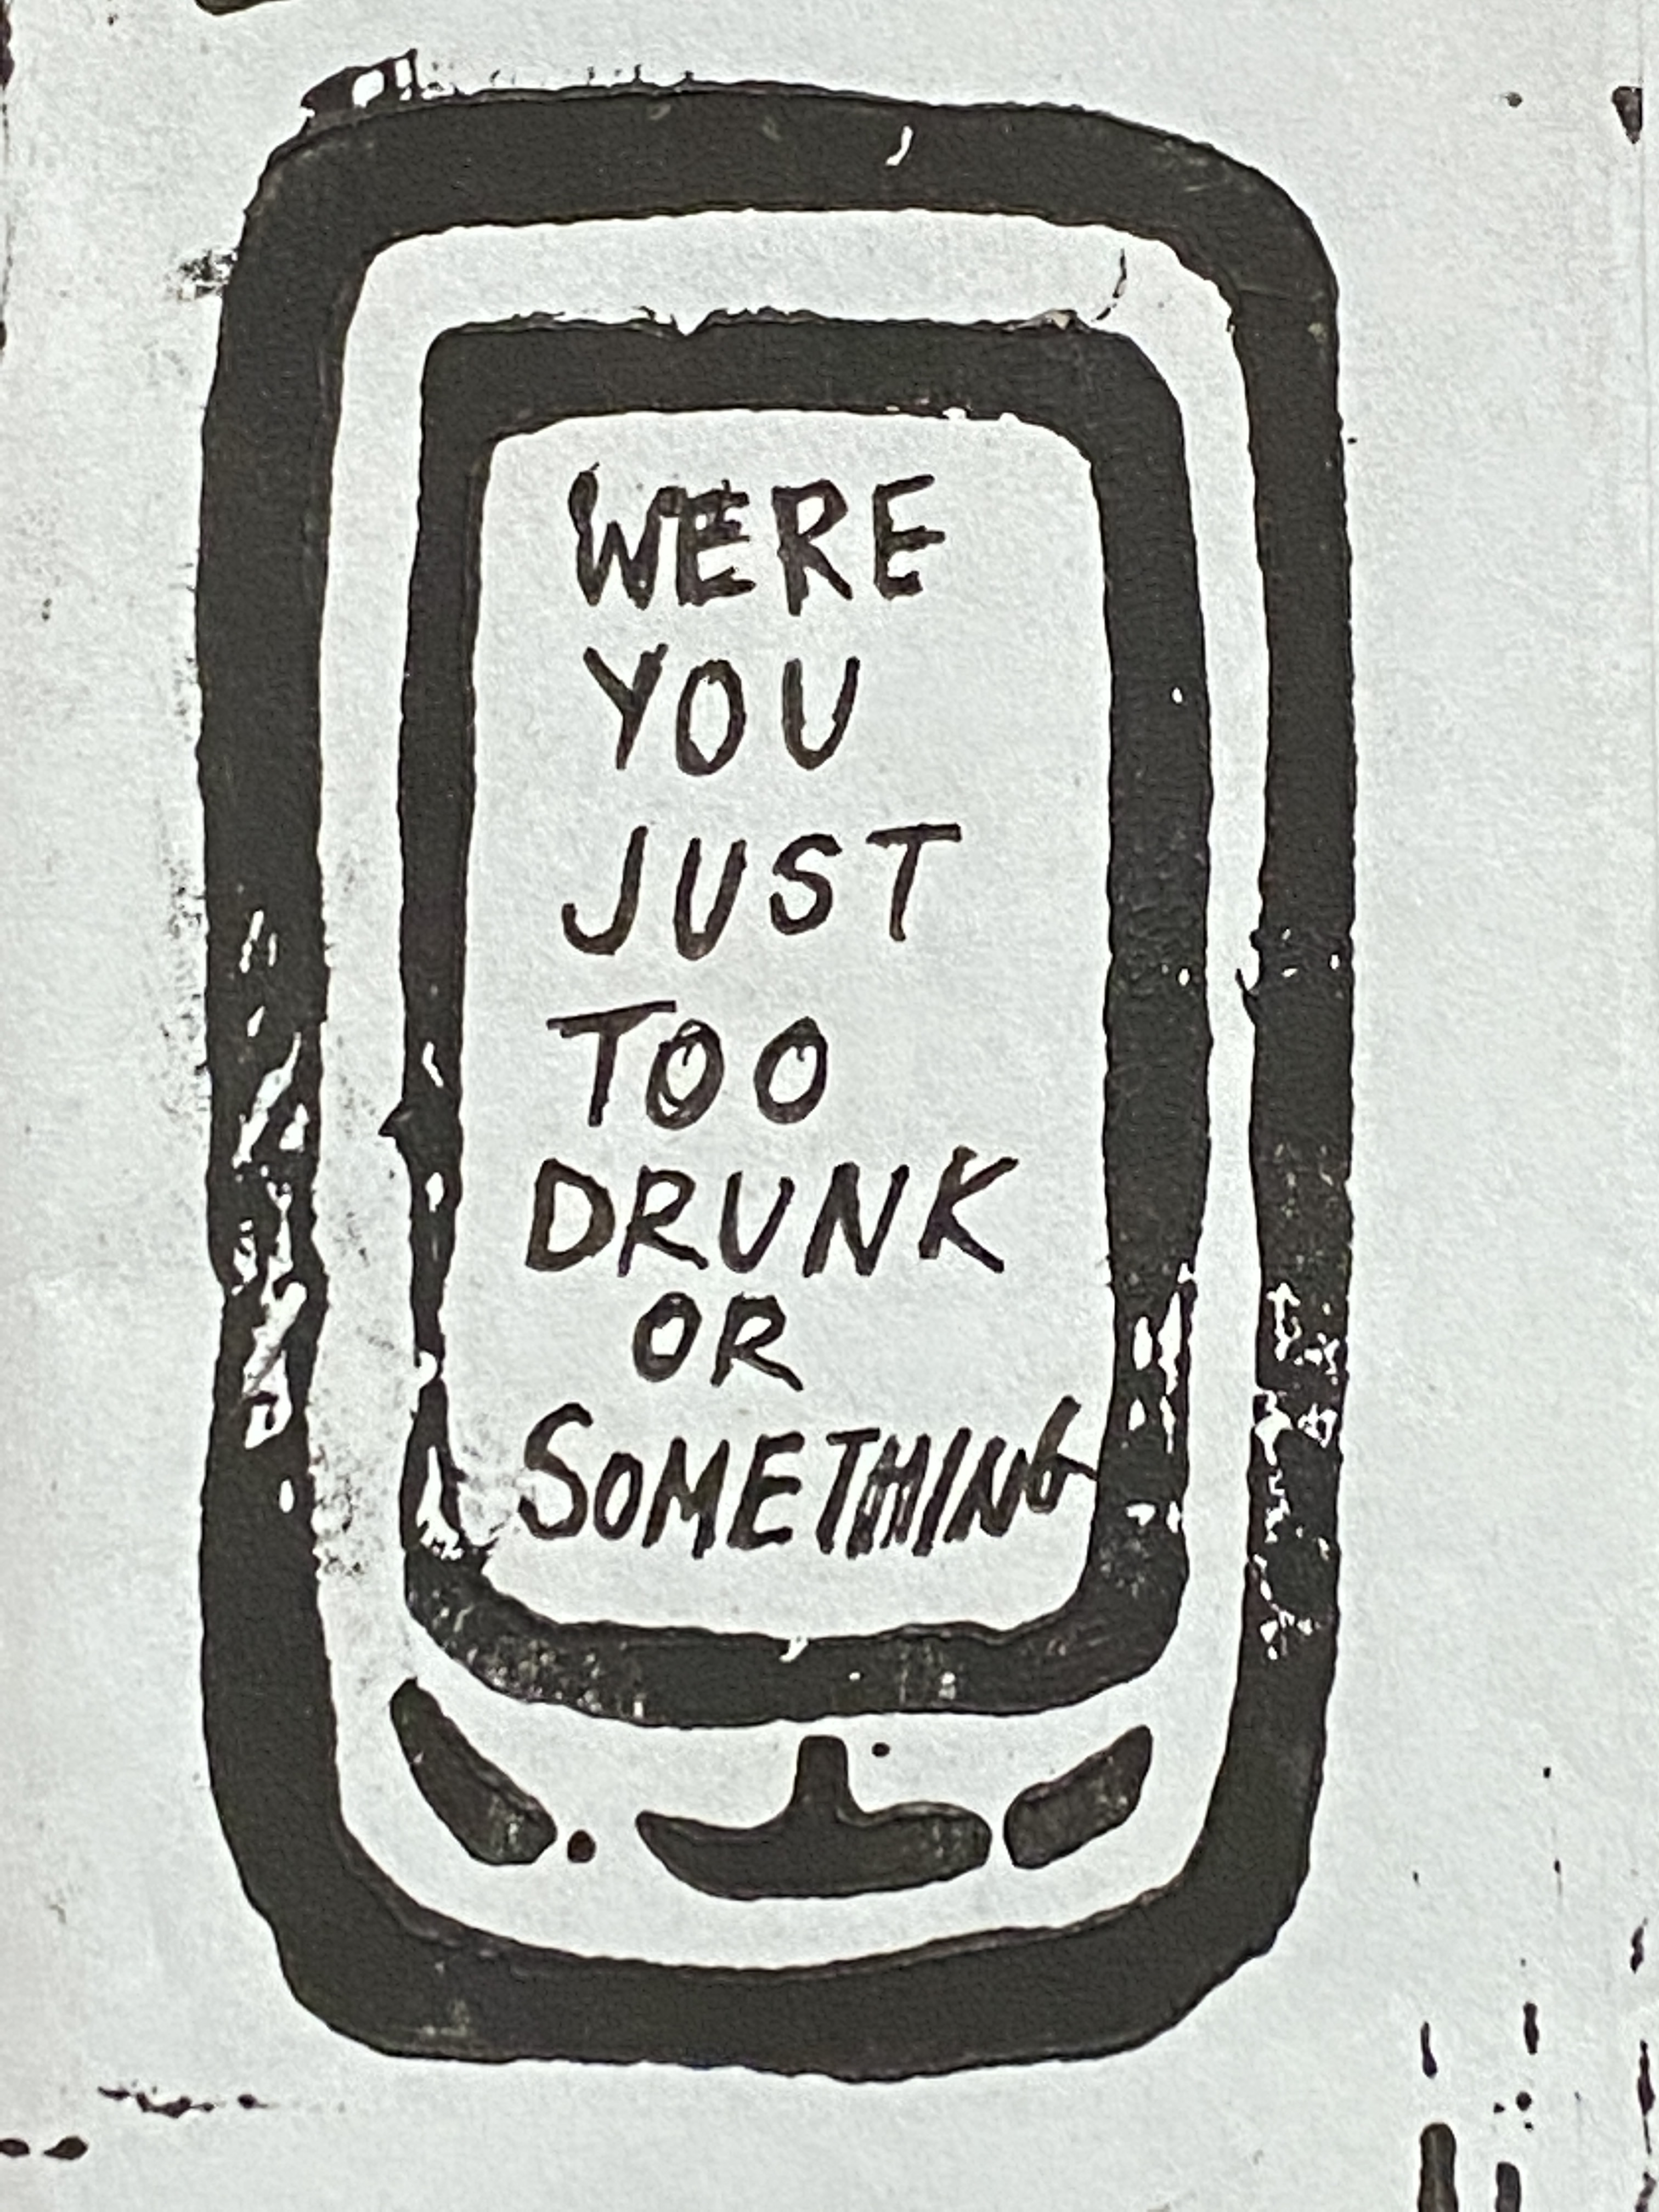 WERE
YOU
JUST
TOO
DRUNK
OR
SOMETHING